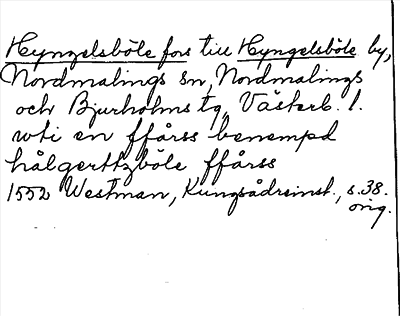 Hyngelsböle fors till Hyngelsböle by,
Nordmalings sn, Nordmalings
och Bjurholms tg, Västerb. l.
wti en ffårss benempd
hålgerttzböle ffårss
1552 Westman, Kungsådreinst., s. 38.
orig.